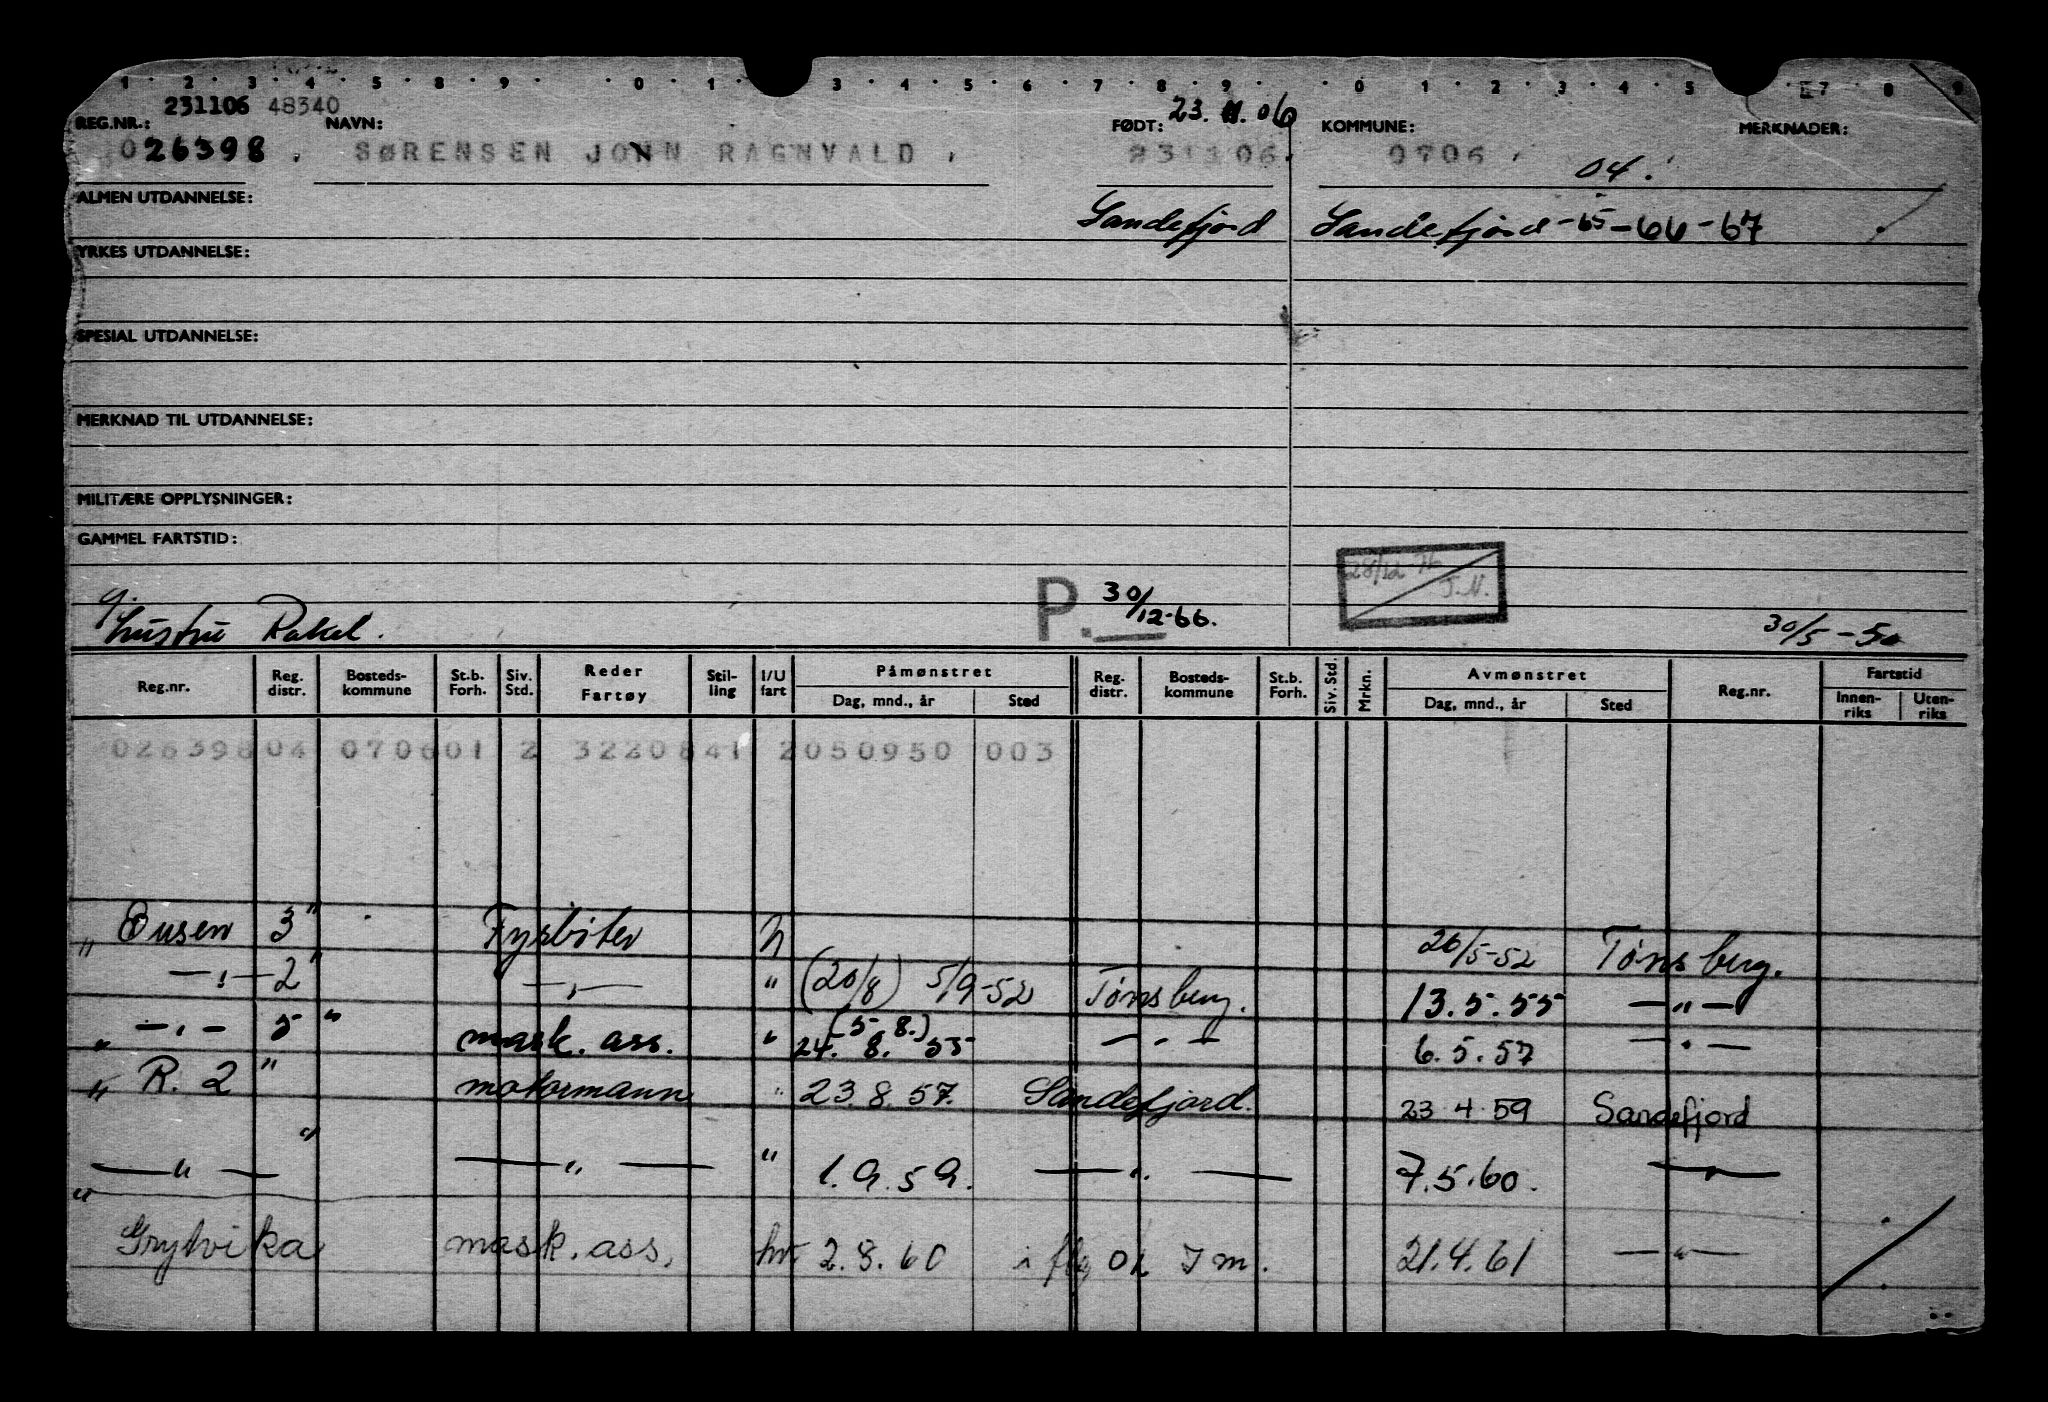 1 · 2 · 3 · 4 · 5 · 8 · 9 · · 0 · 1 · 3 · 4 · 5 · 6 · 7 · 8 · 9 · · 0 · 1 · 2 · 3 · 4 · 5 · 7 · 8 · 9
231106 48340
REG.NR.: NAVN: FØDT: 23.11.06 KOMMUNE: MERKNADER:
026398. SØRENSEN JOHN RAGNVALD. 231106. 0706. 04.
ALMEN UTDANNELSE: Sandefjord Sandefjord -65-66-67
YRKES UTDANNELSE:
SPESIAL UTDANNELSE:
MERKNAD TIL UTDANNELSE:
MILITÆRE OPPLYSNINGER:
GAMMEL FARTSTID:
28/12 76 T.N.
g.
hustru Rakel. P. 30/12-66. 30/5-50
Reg.nr. Reg. distr. Bosteds-kommune St.b. Forh. Siv. Std. Reder Fartøy Stil-ling I/U fart Påmønstret Dag, mnd., år Sted Reg. distr. Bosteds-kommune St.b. Forh. Siv. Std. Mrkn. Avmønstret Dag, mnd., år Sted Reg.nr. Fartstid Innen-riks Uten-riks
02639804 070601 2 3220841 2050950 003
" Ousen 3" Fyrbøter h 26/5-52 Tønsberg.
—"— 2" —"— " (20/8) 5/9-52 Tønsberg. 13.5.55 —"—
" —"— 5" mask. ass. " (5.8.) 24.8.55 —"— 6.5.57 —"—
" R. 2" motormann " 23.8.57. Sandefjord. 23.4.59 Sandefjord
" —"— " —"— " 1.9.59. —"— 7.5.60. —"—
" Grytvika mask. ass. hv. 2.8.60 i flg 21.4.61 —"—